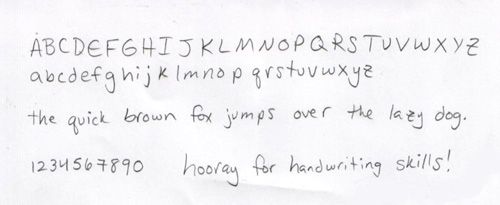 ABCDEFGHIJKLMNOPQRSTUVWXYZ
abcdefghijklmnopqrstuvwxyz
the quick brown fox jumps over the lazy dog.
1234567890 hooray for handwriting skills!